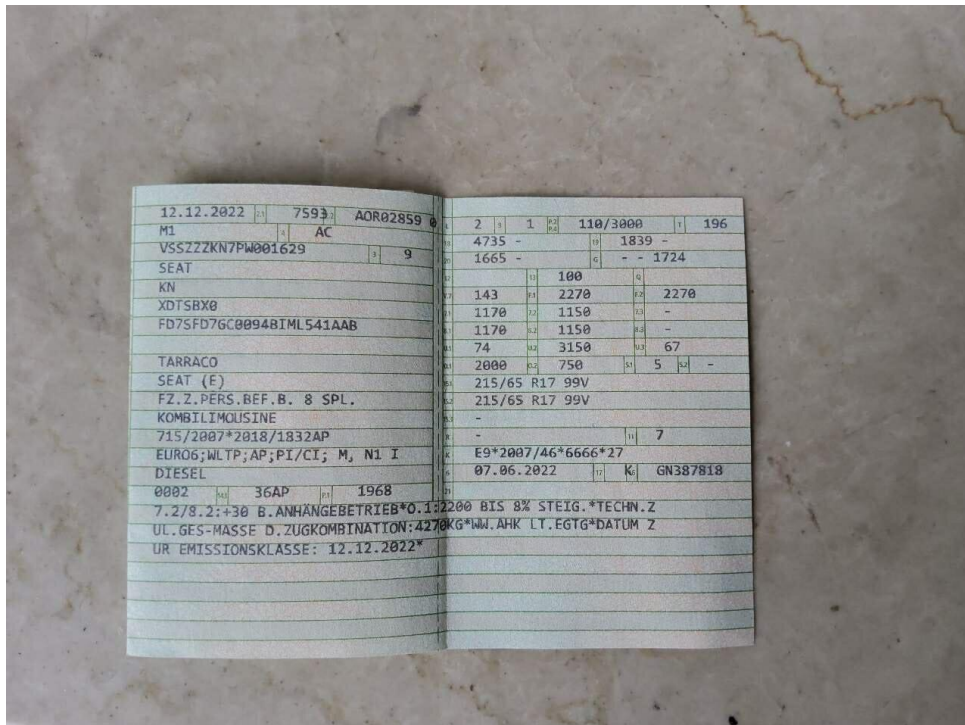 12.12.2022 2.1 7593 2.2 AOR02859 0
M1 4 AC
VSSZZZKN7PW001629 3 9
SEAT
KN
XDTSBX0
FD7SFD7GC0094BIML541AAB
TARRACO
SEAT (E)
FZ.Z.PERS.BEF.B. 8 SPL.
KOMBILIMOUSINE
715/2007*2018/1832AP
EURO6;WLTP;AP;PI/CI; M, N1 I
DIESEL
0002 14.1 36AP P.1 1968
2 9 1 P.2 P.4 110/3000 T 196
4735 - 19 1839 -
1665 - G - - 1724
13 100 Q
143 F.1 2270 F.2 2270
1170 7.2 1150 7.3 -
1170 8.2 1150 8.3 -
74 U.2 3150 U.3 67
2000 O.2 750 S.1 5 S.2 -
215/65 R17 99V
215/65 R17 99V
-
- 11 7
E9*2007/46*6666*27
07.06.2022 17 K 16 GN387818
21
7.2/8.2:+30 B.ANHÄNGEBETRIEB*O.1:2200 BIS 8% STEIG.*TECHN.Z
UL.GES-MASSE D.ZUGKOMBINATION:4270KG*WW.AHK LT.EGTG*DATUM Z
UR EMISSIONSKLASSE: 12.12.2022*